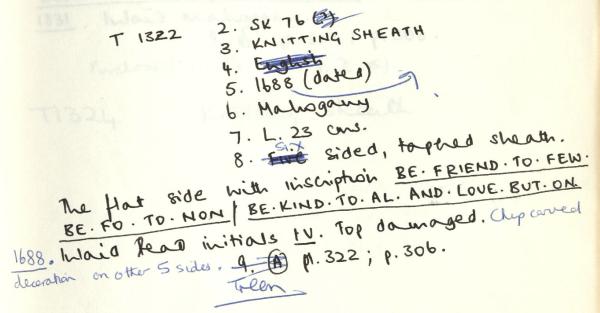 T 1322 2. SK 76 (3)
3. KNITTING SHEATH
4. English
5. 1688 (dated)
6. Mahogany
7. L. 23 cms.
8. Five six sided, tapered sheath.
The flat side with inscription BE. FRIEND. TO. FEW.
BE. FO. TO. NON / BE. KIND. TO. AL. AND. LOVE. BUT. ON
1688. Inlaid lead initials I.V. Top damaged. Chip carved
decoration on other 5 sides. 9. (A) pl. 322 ; p. 306.
Treen